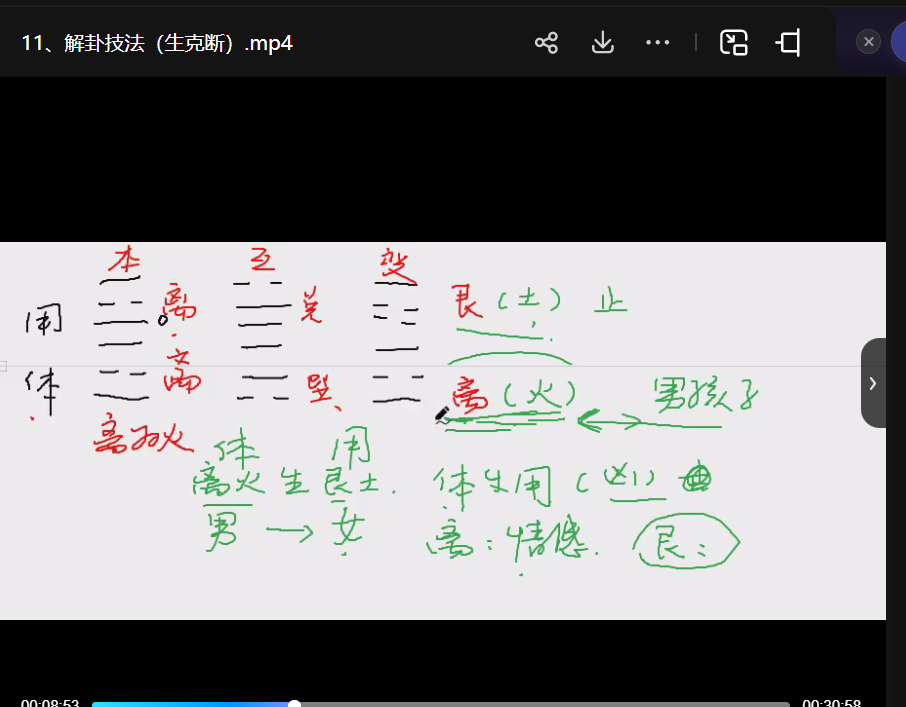 11、解卦技法（生克断）.mp4
本 互 变
用 离 兑 艮（土） 止
体 离 巽 离（火） 男孩子
离为火
体 用
离火生艮土. 体生用（凶）
男 → 女
离：情感. 艮：
00:08:53 00:30:58